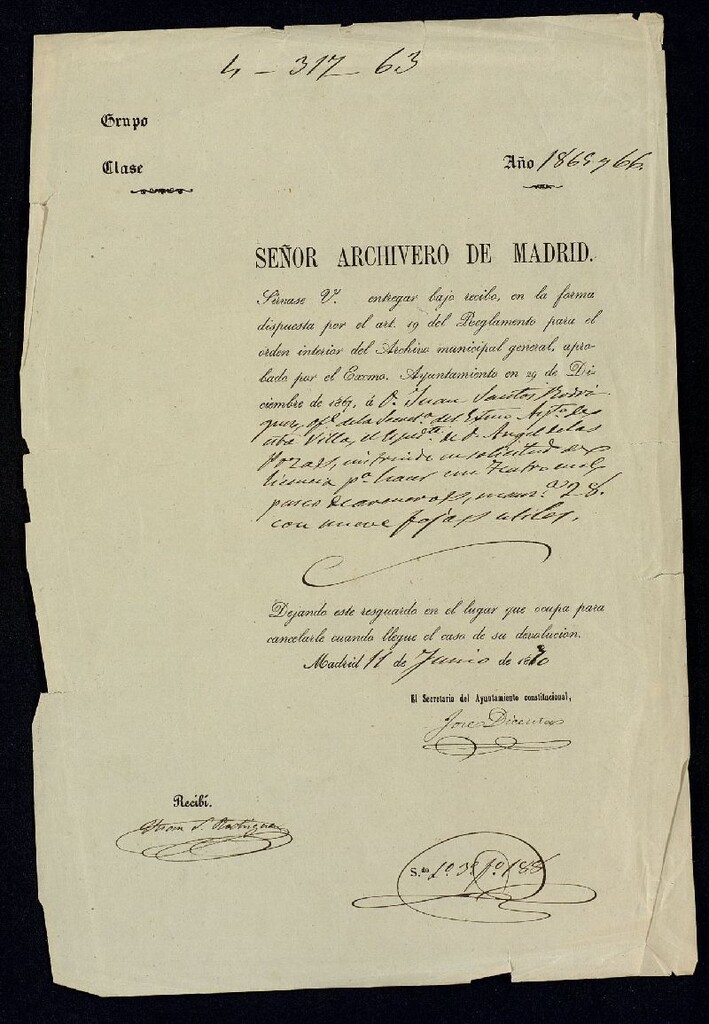 4 - 317 - 63
Grupo
Clase
Año 1865 y 66.
SEÑOR ARCHIVERO DE MADRID.
Sírvase V. entregar bajo recibo, en la forma
dispuesta por el art. 19 del Reglamento para el
orden interior del Archivo municipal general, apro-
bado por el Excmo. Ayuntamiento en 29 de Di-
ciembre de 1867, á D. Juan Santos Rodri
guez, ofl. de la Secreta. del Excmo Aytº de
esta Villa, el Espedte. de D. Angel de las
Pozas, instruido en solicitud de
licencia pª hacer un Teatro en el
paseo de areneros, manzª 28.
con nueve fojas utiles.
Dejando este resguardo en el lugar que ocupa para
cancelarle cuando llegue el caso de su devolucion.
Madrid 11 de Junio de 1870
El Secretario del Ayuntamiento constitucional,
Jose Dicenta
Recibí.
Juan S. Rodriguez
S.do 1º 39 fº 188